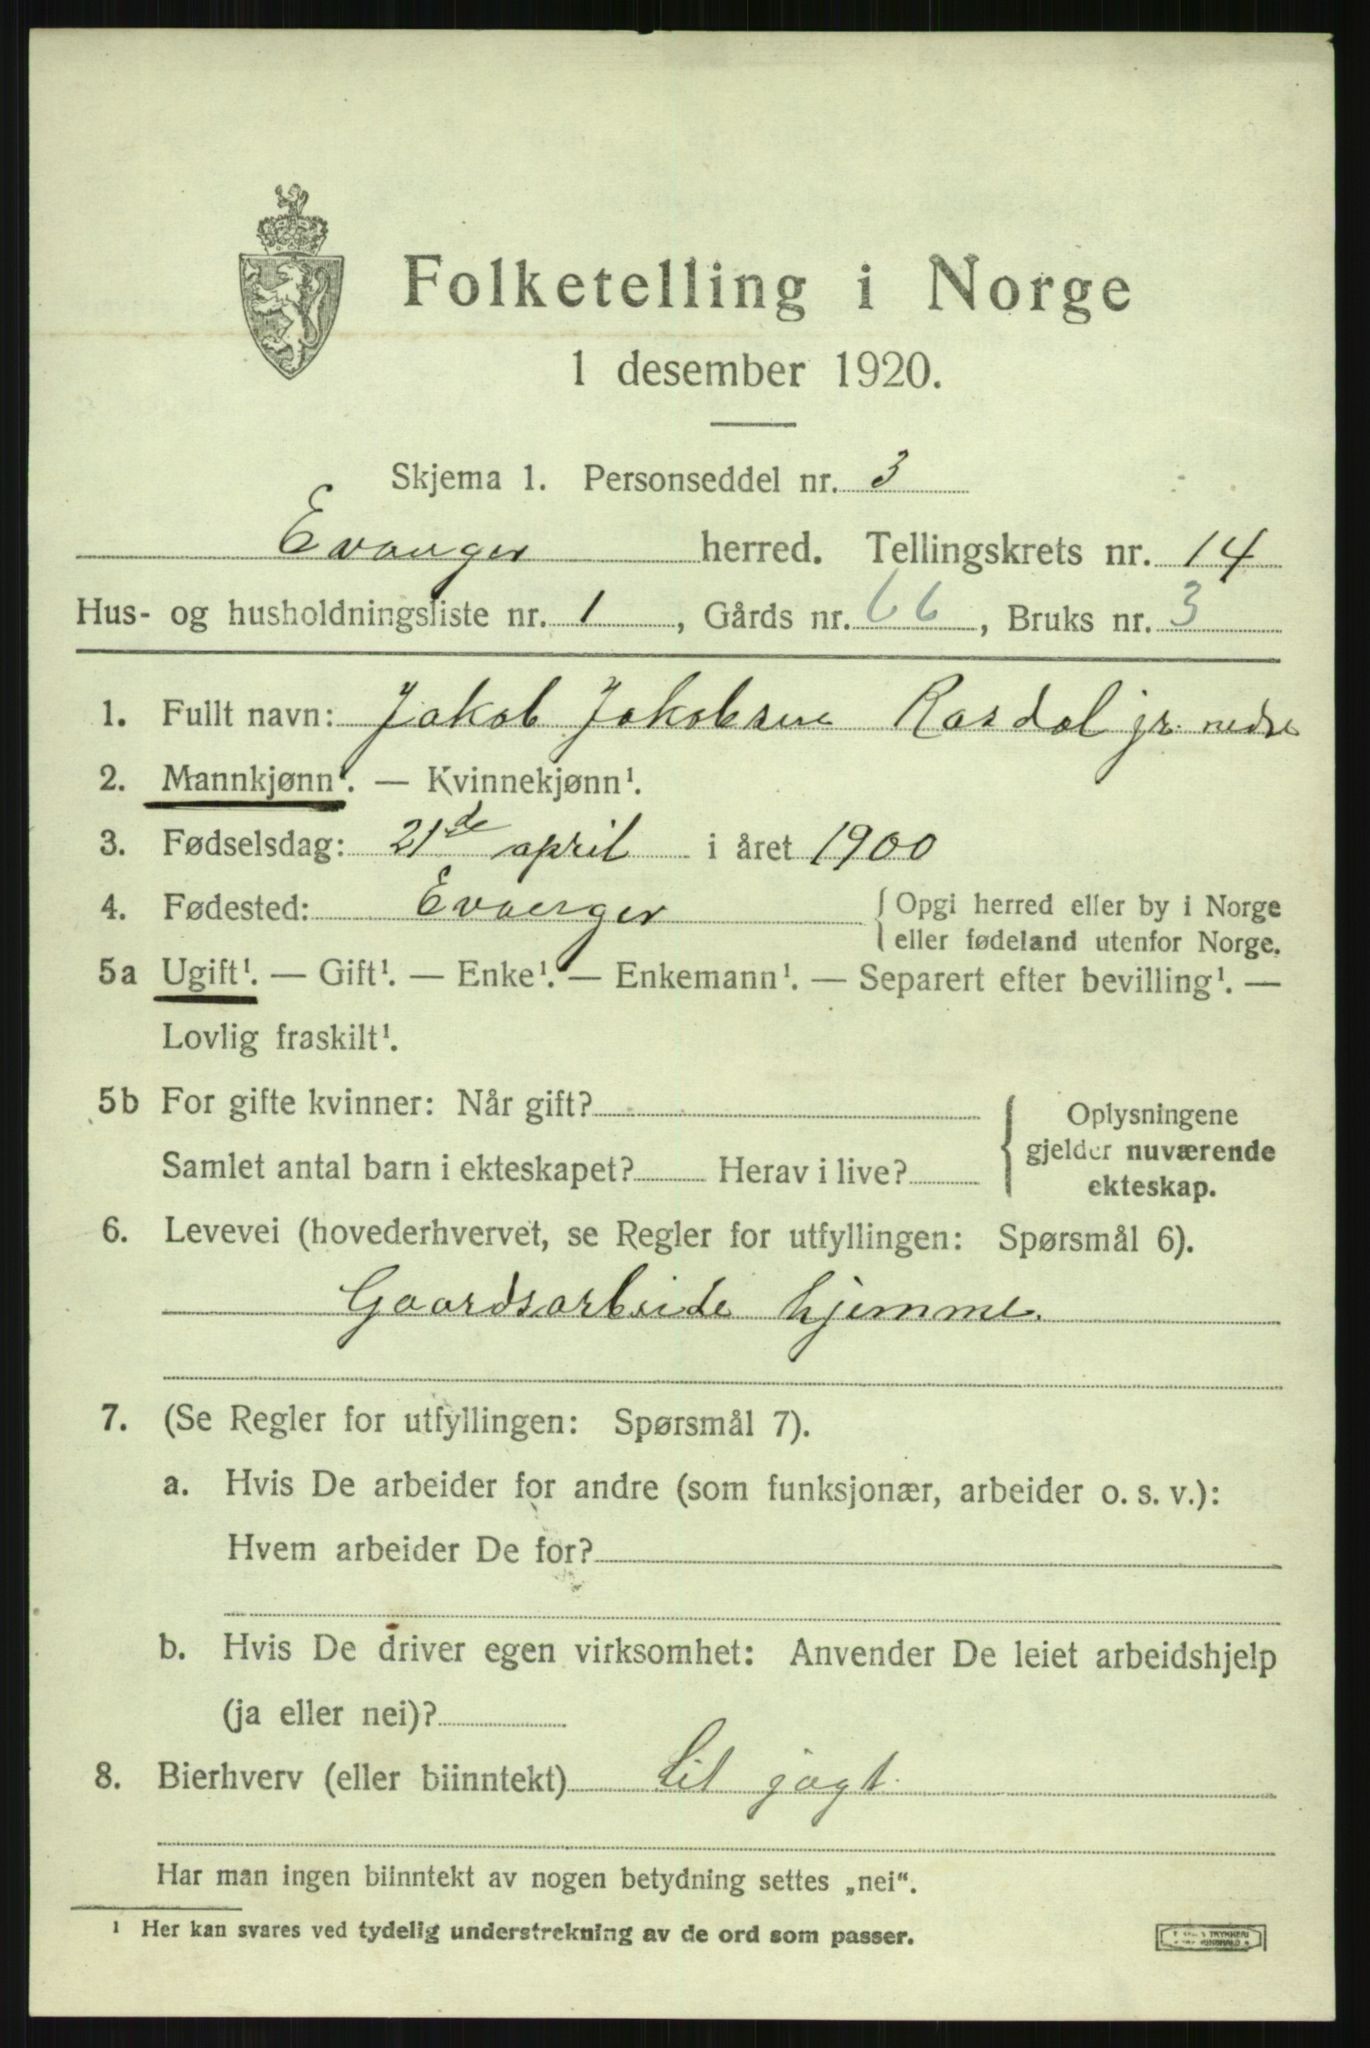 Folketelling i Norge
1 desember 1920.
Skjema 1. Personseddel nr. 3
Evanger herred. Tellingskrets nr. 14
Hus- og husholdningsliste nr. 1, Gårds nr. 66, Bruks nr. 3
1. Fullt navn: Jakob Jakobsen Rasdal jr. nedre
2. Mannkjønn¹. — Kvinnekjønn¹.
3. Fødselsdag: 21de april i året 1900
4. Fødested: Evanger { Opgi herred eller by i Norge
eller fødeland utenfor Norge.
5a Ugift¹. — Gift¹. — Enke¹. — Enkemann¹. — Separert efter bevilling¹. —
Lovlig fraskilt¹.
5b For gifte kvinner: Når gift? { Oplysningene
gjelder nuværende
Samlet antal barn i ekteskapet? Herav i live?
ekteskap.
6. Levevei (hovederhvervet, se Regler for utfyllingen: Spørsmål 6).
Gaardsarbeide hjemme.
7. (Se Regler for utfyllingen: Spørsmål 7).
a. Hvis De arbeider for andre (som funksjonær, arbeider o. s. v.):
Hvem arbeider De for?
b. Hvis De driver egen virksomhet: Anvender De leiet arbeidshjelp
(ja eller nei)?
8. Bierhverv (eller biinntekt) Lit jagt.
Har man ingen biinntekt av nogen betydning settes „nei“.
¹ Her kan svares ved tydelig understrekning av de ord som passer.